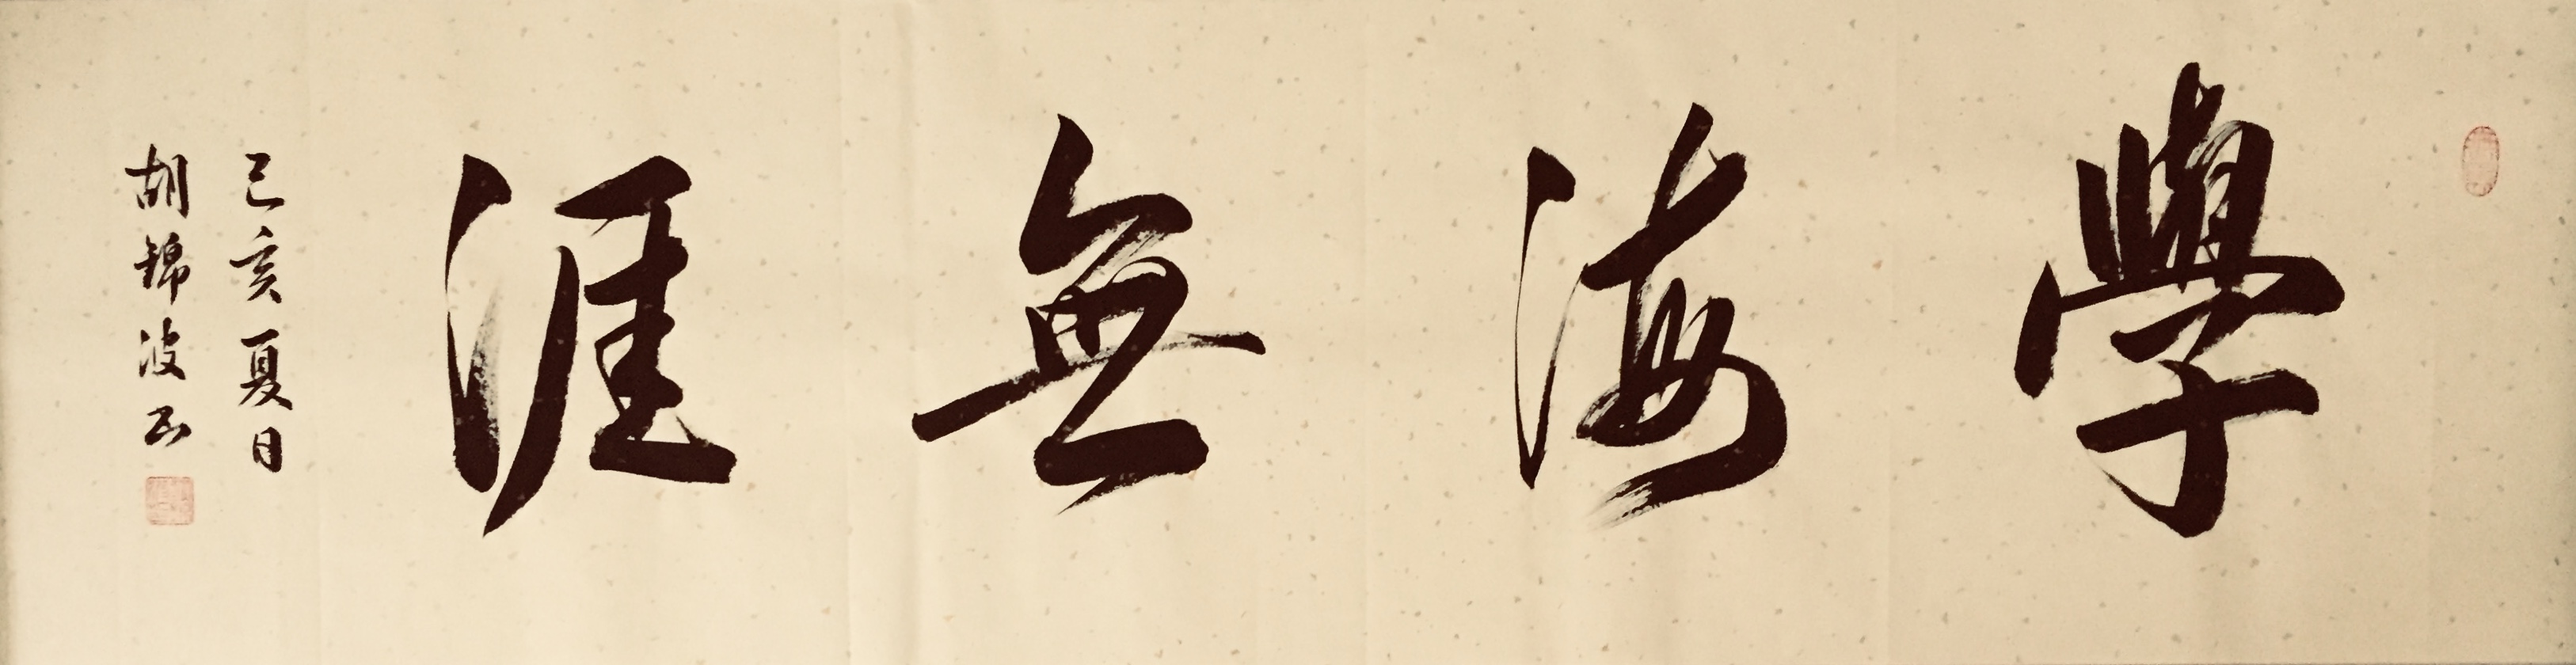 學海無涯
己亥夏日
胡锦波书